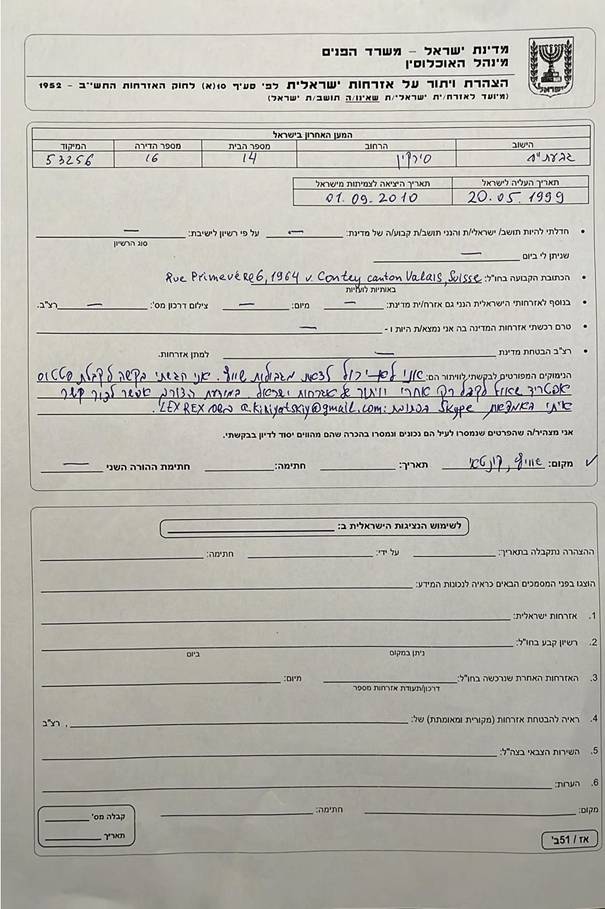 מדינת ישראל - משרד הפנים
מינהל האוכלוסין
הצהרת ויתור על אזרחות ישראלית לפי סעיף 10(א) לחוק האזרחות התשי"ב - 1952
(מיועד לאזרח/ית ישראלי/ת שאינו/ה תושב/ת ישראל)
המען האחרון בישראל
הישוב הרחוב מספר הבית מספר הדירה המיקוד
גבעתיים סירקין 14 16 53256
תאריך העליה לישראל תאריך היציאה לצמיתות מישראל
20.05.1999 01.09.2010
• חדלתי להיות תושב/ ישראלי/ת והנני תושב/ת קבוע/ה של מדינת: — על פי רשיון לישיבת: —
סוג הרשיון
שניתן לי ביום —
• הכתובת הקבועה בחו"ל: Rue Primevère 6, 1964 v. Contey canton Valais, Suisse
באותיות לועזיות
• בנוסף לאזרחותי הישראלית הנני גם אזרח/ית מדינת: — מיום: — צילום דרכון מס': — רצ"ב.
• טרם רכשתי אזרחות המדינה בה אני נמצא/ת היות ו - —
• רצ"ב הבטחת מדינת — למתן אזרחות.
הנימוקים המפורטים לבקשתי לוויתור הם: אני לא יכול לצאת מגבולות שוויץ. אני הגשתי בקשה לקבלת סטטוס
אפטריד שאוכל לקבל רק אחרי וויתור על אזרחות ישראל. במידת הצורך אפשר ליצור קשר
איתי באמצעות Skype בכתובת: a.kiriyatskiy@gmail.com בשם LEX REX.
אני מצהיר/ה שהפרטים שנמסרו לעיל הם נכונים ונמסרו בהכרה שהם מהווים יסוד לדיון בבקשתי.
✓ מקום: שוויץ, קונטאי תאריך: חתימה: חתימת ההורה השני —
לשימוש הנציגות הישראלית ב:
ההצהרה נתקבלה בתאריך: על ידי: חתימה:
הוצגו בפני המסמכים הבאים כראיה לנכונות המידע:
1. אזרחות ישראלית:
2. רשיון קבע בחו"ל:
ניתן במקום ביום
3. האזרחות האחרת שנרכשה בחו"ל: מיום:
דרכון/תעודת אזרחות מספר
4. ראיה להבטחת אזרחות (מקורית ומאומתת) של: , רצ"ב
5. השירות הצבאי בצה"ל:
6. הערות:
מקום: חתימה:
קבלה מס'
תאריך
אז / 51ב'